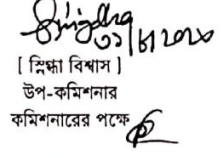 ৩১/৮/২০২০
[ স্নিগ্ধা বিশ্বাস ]
উপ-কমিশনার
কমিশনারের পক্ষে